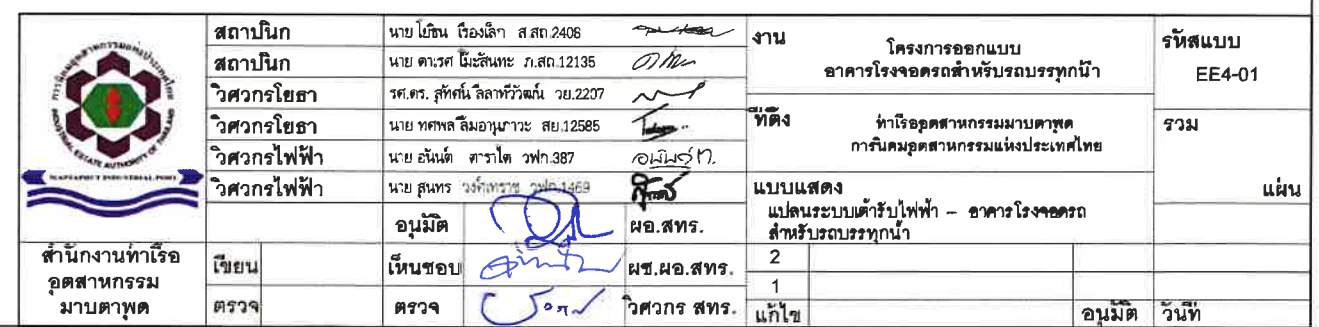 การนิคมอุตสาหกรรมแห่งประเทศไทย
INDUSTRIAL ESTATE AUTHORITY OF THAILAND
MAPTAPHUT INDUSTRIAL PORT
สำนักงานท่าเรือ
อุตสาหกรรม
มาบตาพุด
สถาปนิก นาย โยธิน เรืองเล็ก ส.สถ.2408
สถาปนิก นาย ดาเรศ โมะสันทะ ภ.สถ.12135
วิศวกรโยธา รศ.ดร. สุทัศน์ ลีลาทวีวัฒน์ วย.2207
วิศวกรโยธา นาย ทศพล ลิมอานุภาวะ สย.12585
วิศวกรไฟฟ้า นาย อนันต์ ดาราไต วฟก.387 อนันต์ ด.
วิศวกรไฟฟ้า นาย สุนทร วงศ์เทราช วฟก.1469
อนุมัติ ผอ.สทร.
เขียน เห็นชอบ ผช.ผอ.สทร.
ตรวจ ตรวจ วิศวกร สทร.
งาน
โครงการออกแบบ
อาคารโรงจอดรถสำหรับรถบรรทุกน้ำ
ที่ตั้ง
ท่าเรืออุตสาหกรรมมาบตาพุด
การนิคมอุตสาหกรรมแห่งประเทศไทย
แบบแสดง
แปลนระบบเต้ารับไฟฟ้า – อาคารโรงจอดรถ
สำหรับรถบรรทุกน้ำ
2
1
แก้ไข อนุมัติ วันที่
รหัสแบบ
EE4-01
รวม
แผ่น